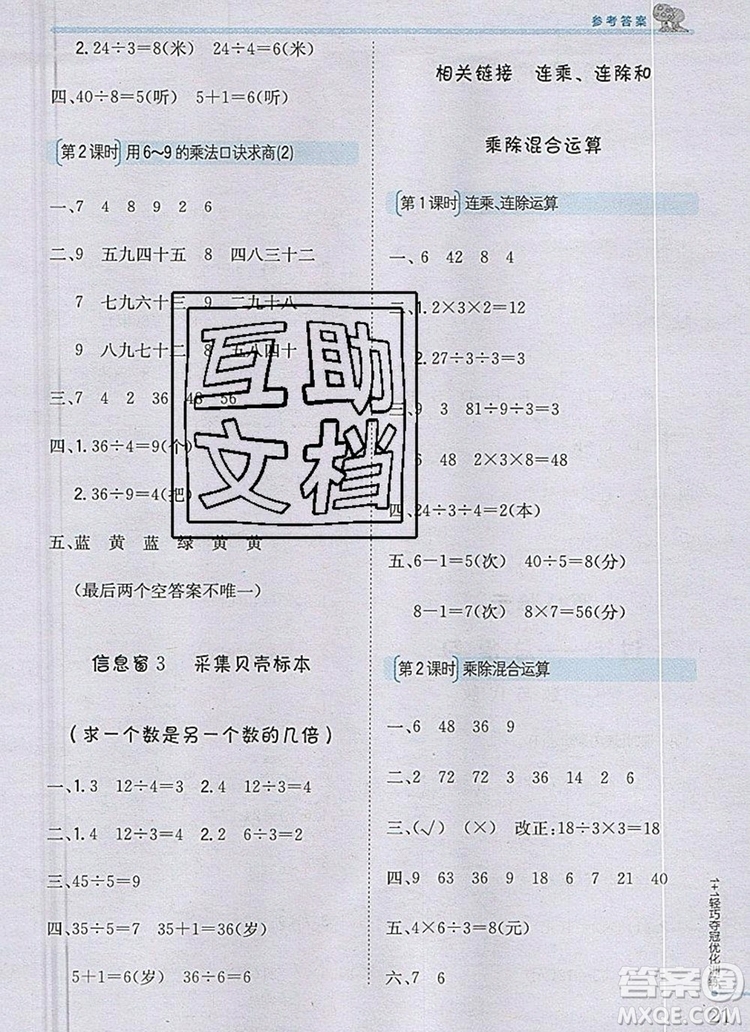 参考答案
2.24÷3=8(米) 24÷6=4(米)
四、40÷8=5(听) 5+1=6(听)
第2课时 用6~9的乘法口诀求商(2)
一、7 4 8 9 2 6
二、9 五九四十五 8 四八三十二
7 七九六十三 9 二九十八
9 八九七十二 8 五八四十
三、7 4 2 36 48 56
四、1.36÷4=9(个)
2.36÷9=4(把)
五、蓝 黄 蓝 绿 黄 黄
(最后两个空答案不唯一)
信息窗3 采集贝壳标本
(求一个数是另一个数的几倍)
一、1.3 12÷4=3 2.4 12÷3=4
二、1.4 12÷3=4 2.3 12÷4=3
三、45÷5=9
四、35÷5=7 35+1=36(岁)
5+1=6(岁) 36÷6=6
相关链接 连乘、连除和
乘除混合运算
第1课时 连乘、连除运算
一、6 42 8 4
二、1.2×3×2=12
2.27÷3÷3=3
三、9 3 81 9 36÷4÷3=3
6 48 2×3×8=48
四、24÷3÷4=2(本)
五、6-1=5(次) 40÷5=8(分)
8-1=7(次) 8×7=56(分)
第2课时 乘除混合运算
一、6 48 36 9
二、2 72 72 3 36 14 2 6
三、(√) (×) 改正:18÷3×3=18
四、9 63 36 9 18 9 21 40
五、4×6÷3=8(元)
六、7 6
1+1轻巧夺冠优化训练
21
互助
文档
答案圈
MXQE.COM